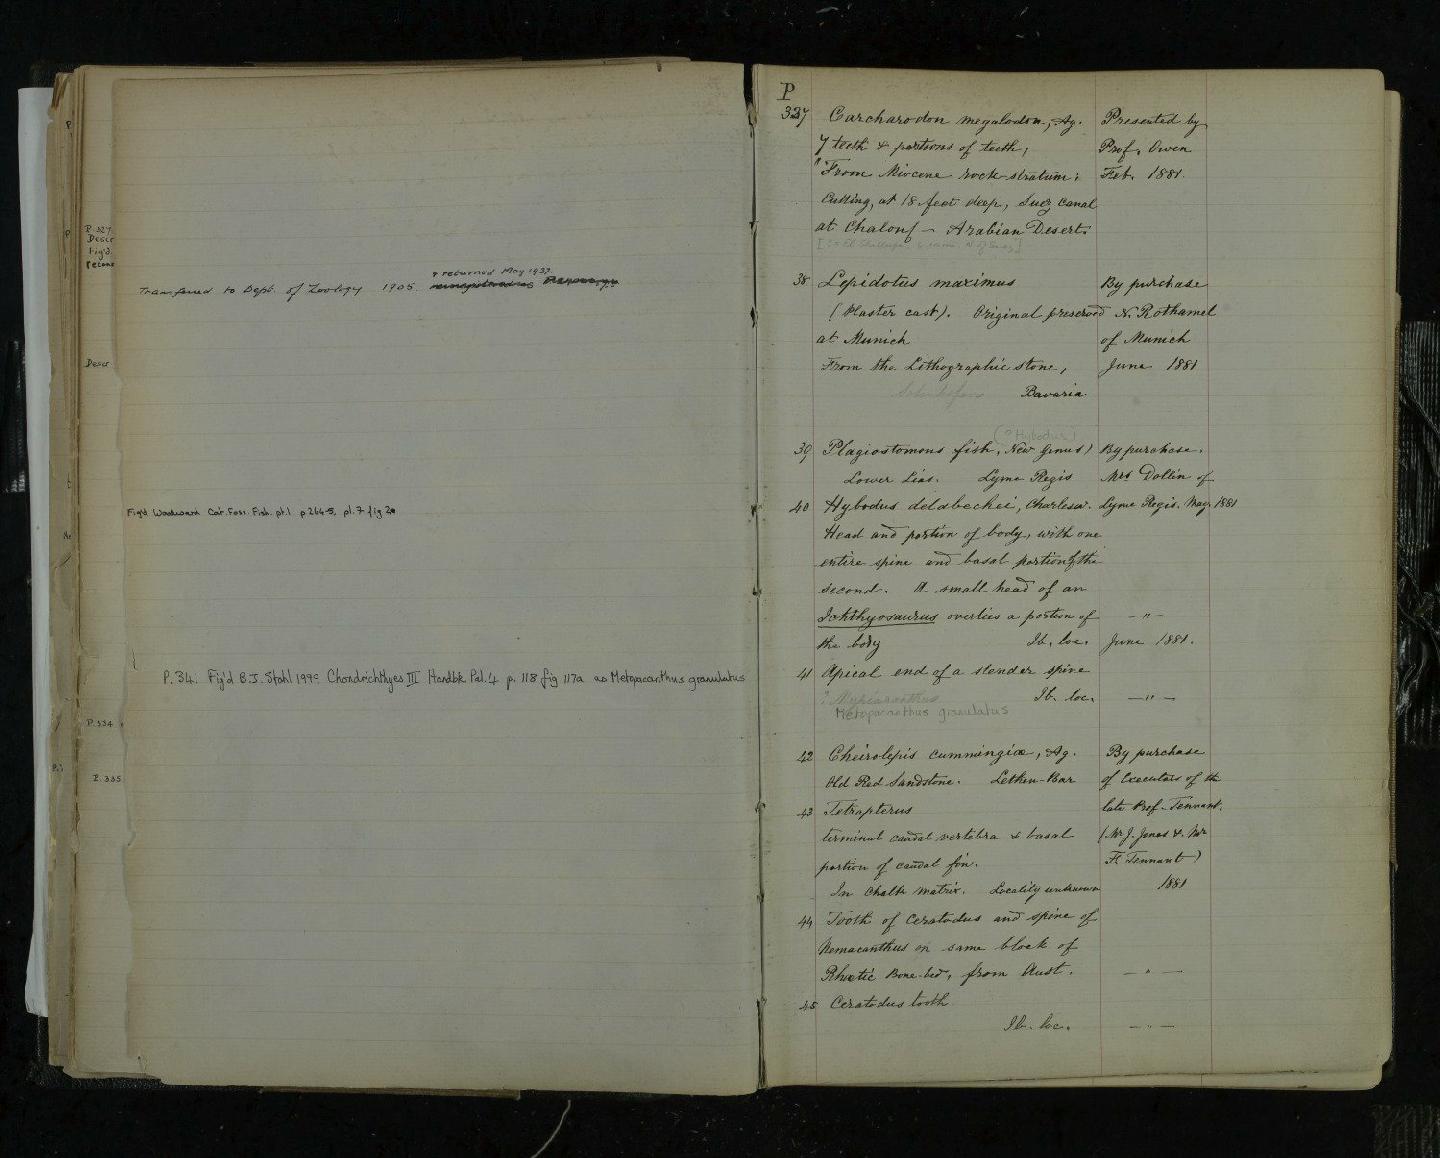 P.327
Descr
Fig'd
P returned May 1937
Transferred to Dept. of Zoology 1905
Descr
Fig'd Woodward Cat. Foss. Fish. pt.1 p 264-5, pl. 7 fig 2
P.34. Fig'd B.J. Stahl 1999 Chondrichthyes III Handbk Pal. 4 p. 118 fig 117a as Metopacanthus granulatus
P.334
P.335
P
327 Carcharodon megalodon, Ag. Presented by
7 teeth & portions of teeth, Prof. Owen
"From Miocene rock-stratum: Feb. 1881.
Cutting, at 18 feet deep, Suez Canal
at Chalouf — Arabian Desert.
38 Lepidotus maximus By purchase
(Plaster cast). Original preserved N. Rothamel
at Munich of Munich
From the Lithographic stone, June 1881
Bavaria
(? Hybodus)
39 Plagiostomous fish, New Genus) By purchase.
Lower Lias. Lyme Regis Mrs Dollin of
40 Hybodus delabechei, Charlesw. Lyme Regis. May 1881
Head and portion of body, with one
entire spine and basal portion of the
second. A small head of an
Ichthyosaurus overlies a portion of — " —
the body Ib. loc. June 1881.
41 Apical end of a slender spine
Ib. loc. — " —
Metopacanthus granulatus
42 Cheirolepis cummingiæ, Ag. By purchase
Old Red Sandstone. Lethen-Bar of Executors of the
43 Tetrapterus late Prof. Tennant.
terminal caudal vertebra & basal (Mr J. Jones & Mr
portion of caudal fin. F. Tennant)
In Chalk matrix. Locality unknown 1881
44 Tooth of Ceratodus and spine of
Nemacanthus on same block of
Rhætic Bone-bed, from Aust. — " —
45 Ceratodus tooth
Ib. loc. — " —